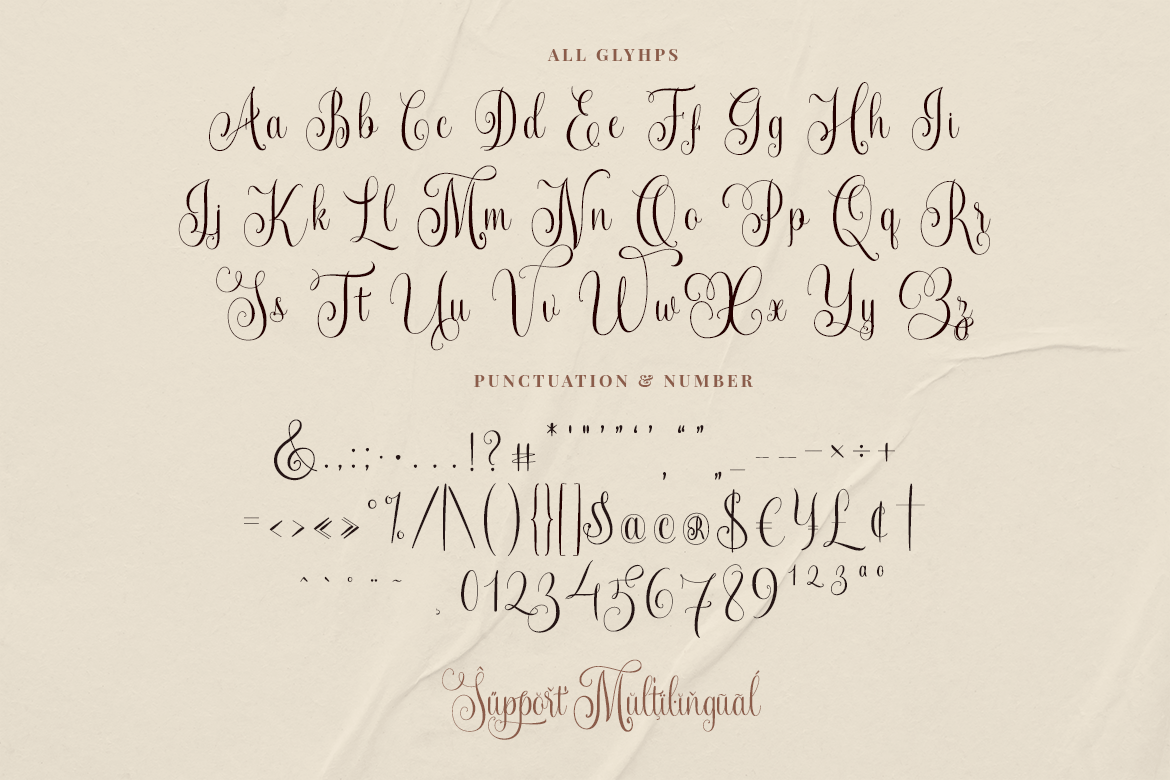 ALL GLYHPS
Aa Bb Cc Dd Ee Ff Gg Hh Ii
Jj Kk Ll Mm Nn Oo Pp Qq Rr
Ss Tt Uu Vv Ww Xx Yy Zz
PUNCTUATION & NUMBER
&.,:;·•...!?#*'"’”‘’“”‚„_–—-×÷+
=<>«»°%/|\(){}[]§@©®$€¥£¢†
^`°¨~¸0123456789¹²³ªº
Ŝűppořt Mŭltįlïňgūãĺ